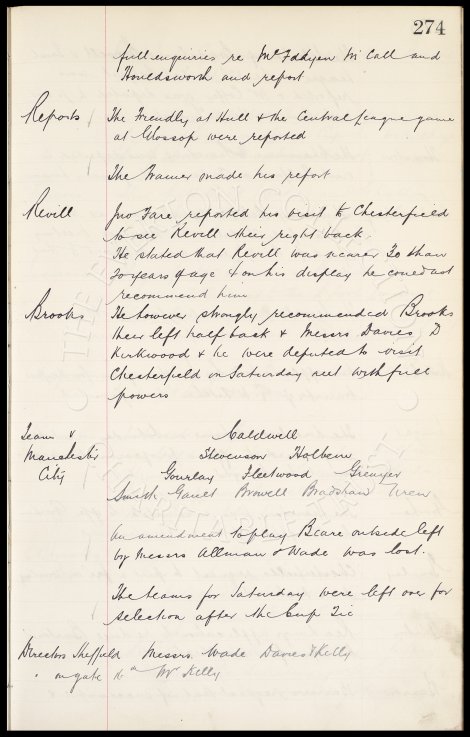 274
full enquiries re McFadyen McCall and
Houldsworth and report
Reports The Friendly at Hull & the Central League game
at Glossop were reported
The Trainer made his report
Revill Jno Fare reported his visit to Chesterfield
to see Revill their right back.
He stated that Revill was nearer 30 than
20 years of age & on his display he could not
recommend him
Brooks He however strongly recommended Brooks
their left half back & Messrs Davies, D
Kirkwood & he were deputed to visit
Chesterfield on Saturday next with full
powers
Team v Caldwell
Manchester Stevenson Holbem
City Gourlay Fleetwood Grenyer
Smith Gault Browell Bradshaw Uren
An amendment to play Beare outside left
by Messrs Allman & Wade was lost.
The teams for Saturday were left over for
selection after the Cup Tie
Directors Sheffield Messrs Wade Davies & Kelly
" on gate Mr Kelly